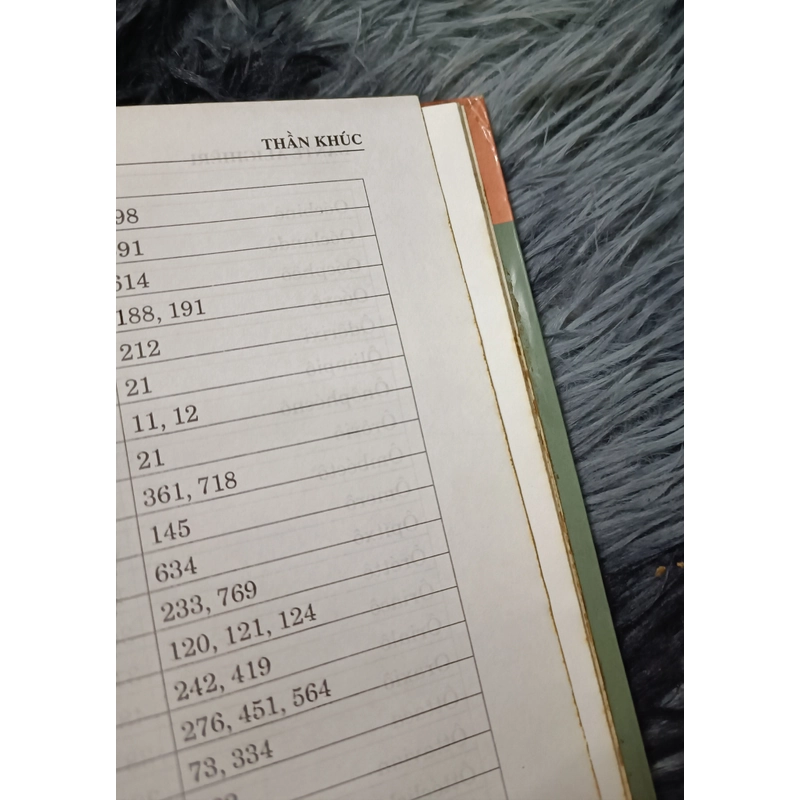 THẦN KHÚC
98
91
614
188, 191
212
21
11, 12
21
361, 718
145
634
233, 769
120, 121, 124
242, 419
276, 451, 564
73, 334